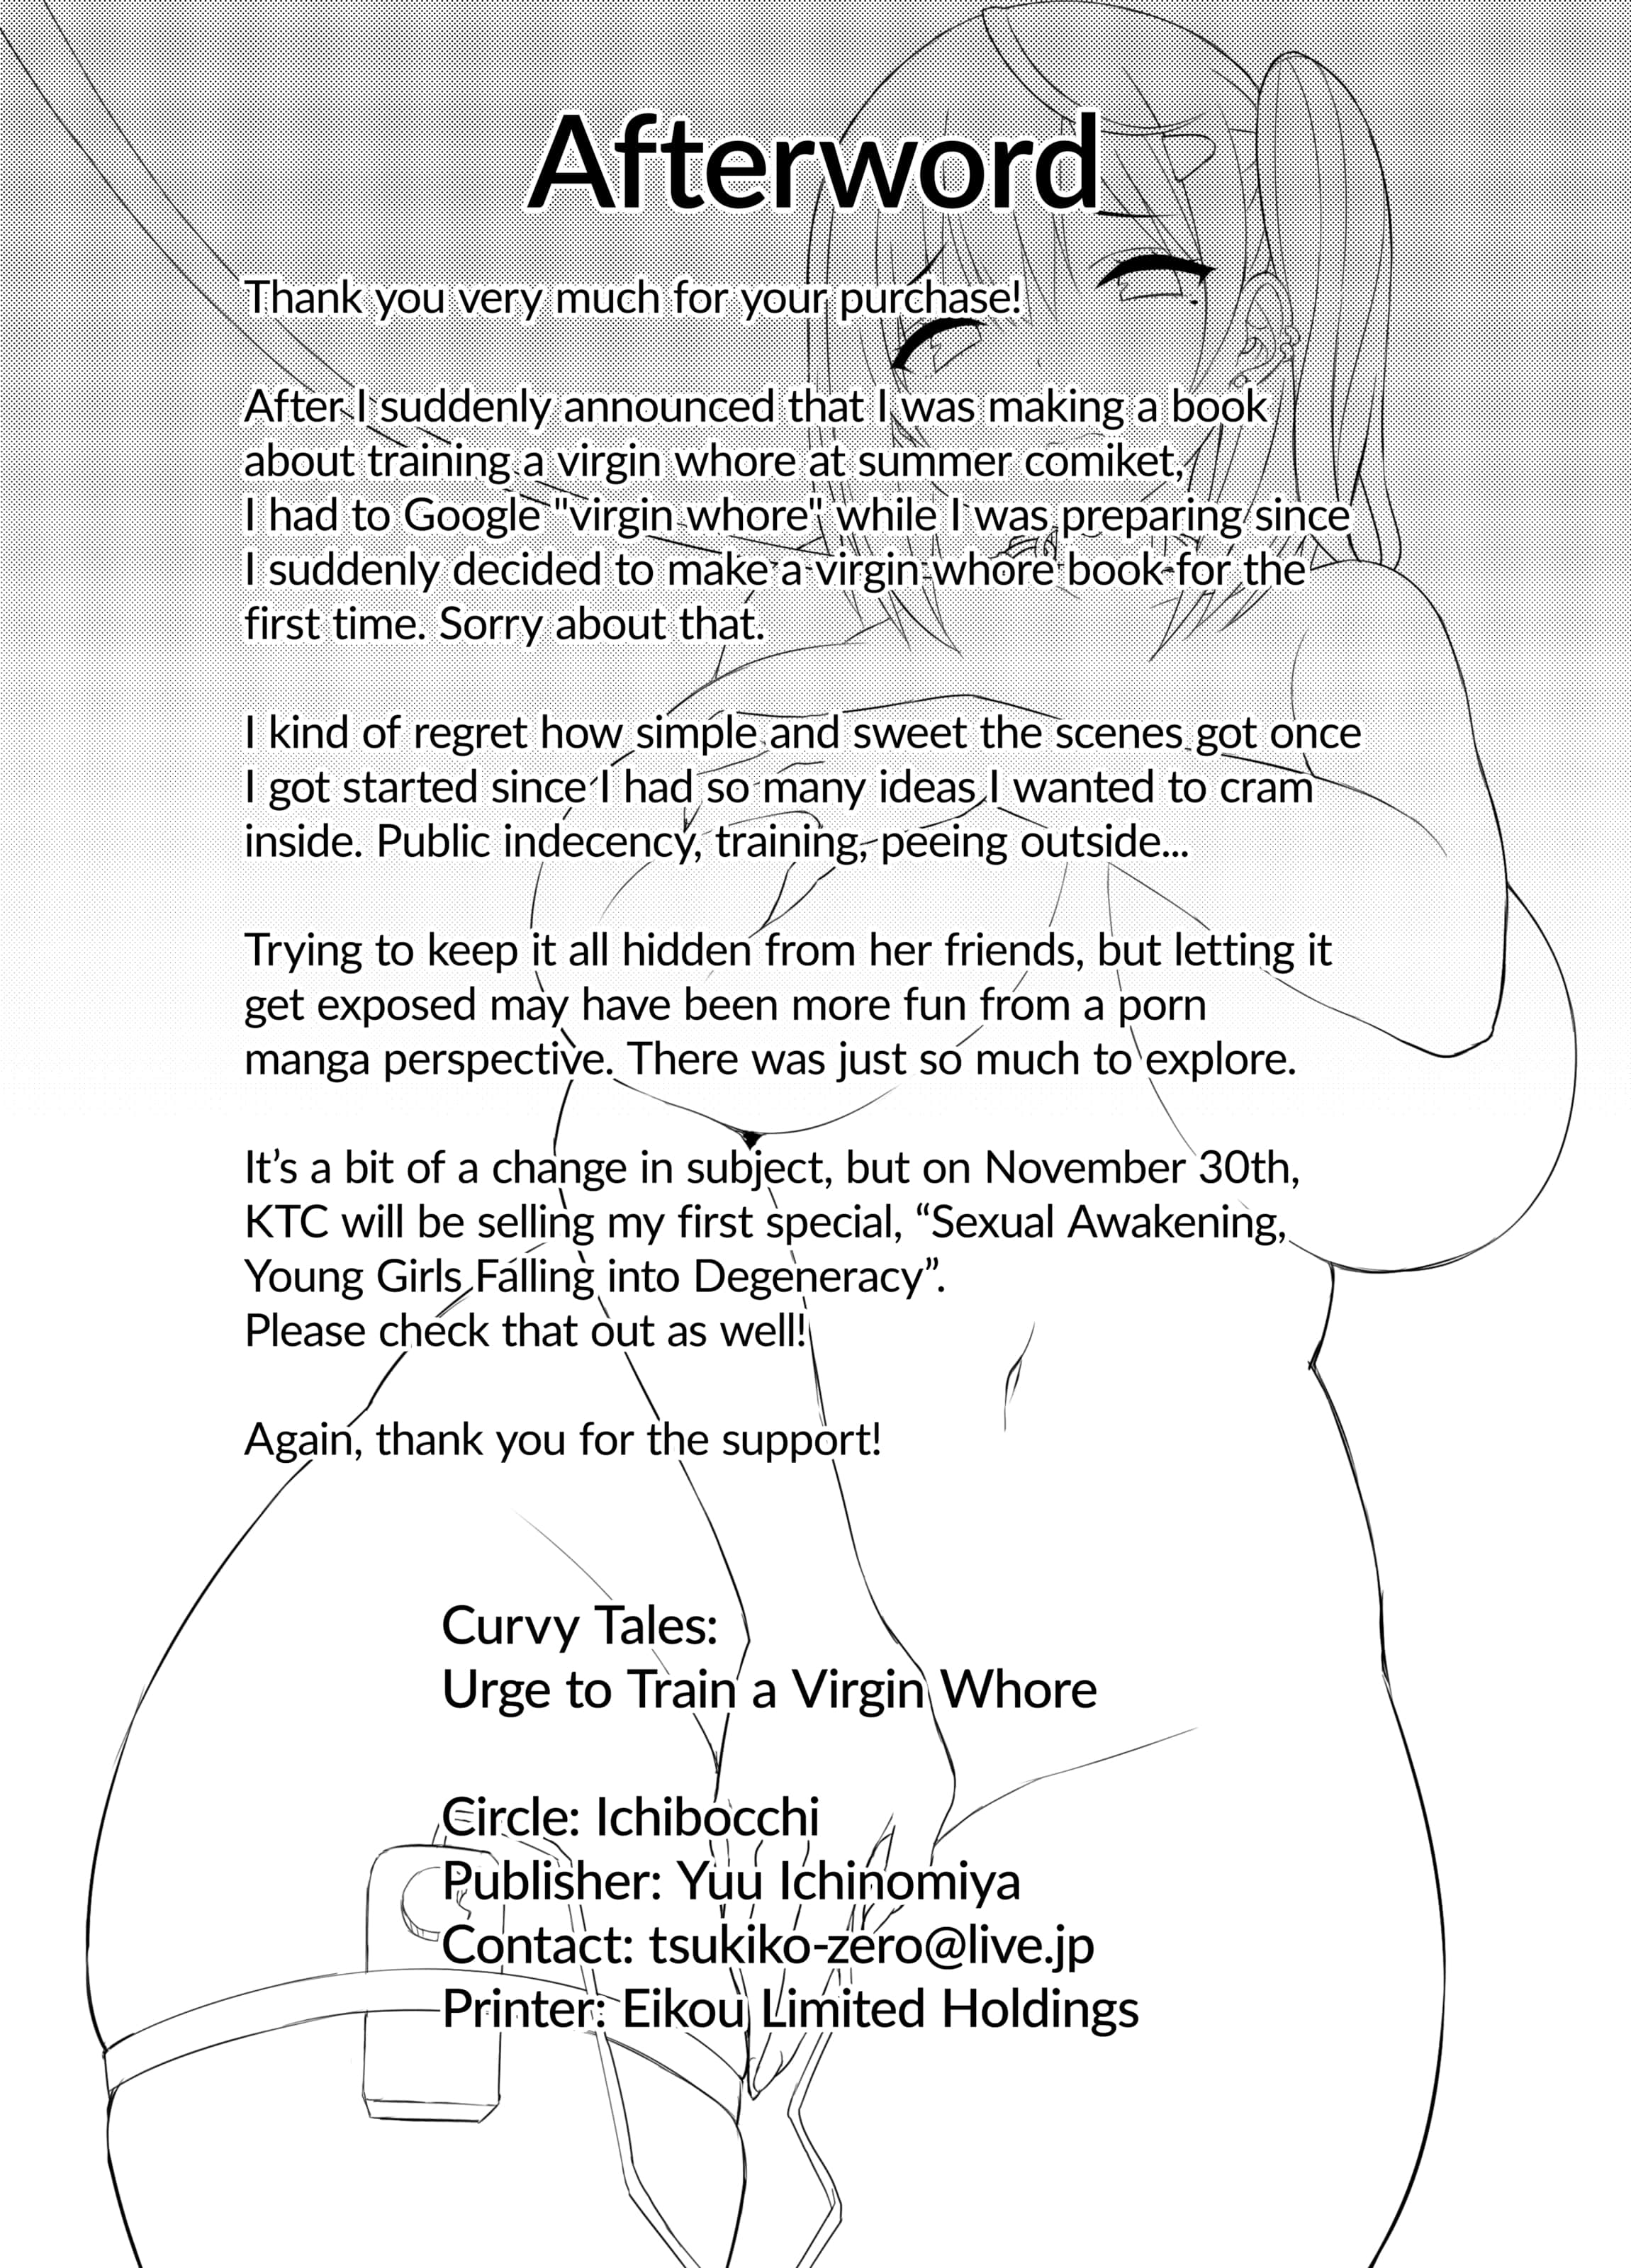 Afterword
Thank you very much for your purchase!
After I suddenly announced that I was making a book
about training a virgin whore at summer comiket,
I had to Google "virgin whore" while I was preparing since
I suddenly decided to make a virgin whore book for the
first time. Sorry about that.
I kind of regret how simple and sweet the scenes got once
I got started since I had so many ideas I wanted to cram
inside. Public indecency, training, peeing outside...
Trying to keep it all hidden from her friends, but letting it
get exposed may have been more fun from a porn
manga perspective. There was just so much to explore.
It’s a bit of a change in subject, but on November 30th,
KTC will be selling my first special, “Sexual Awakening,
Young Girls Falling into Degeneracy”.
Please check that out as well!
Again, thank you for the support!
Curvy Tales:
Urge to Train a Virgin Whore
Circle: Ichibocchi
Publisher: Yuu Ichinomiya
Contact: tsukiko-zero@live.jp
Printer: Eikou Limited Holdings